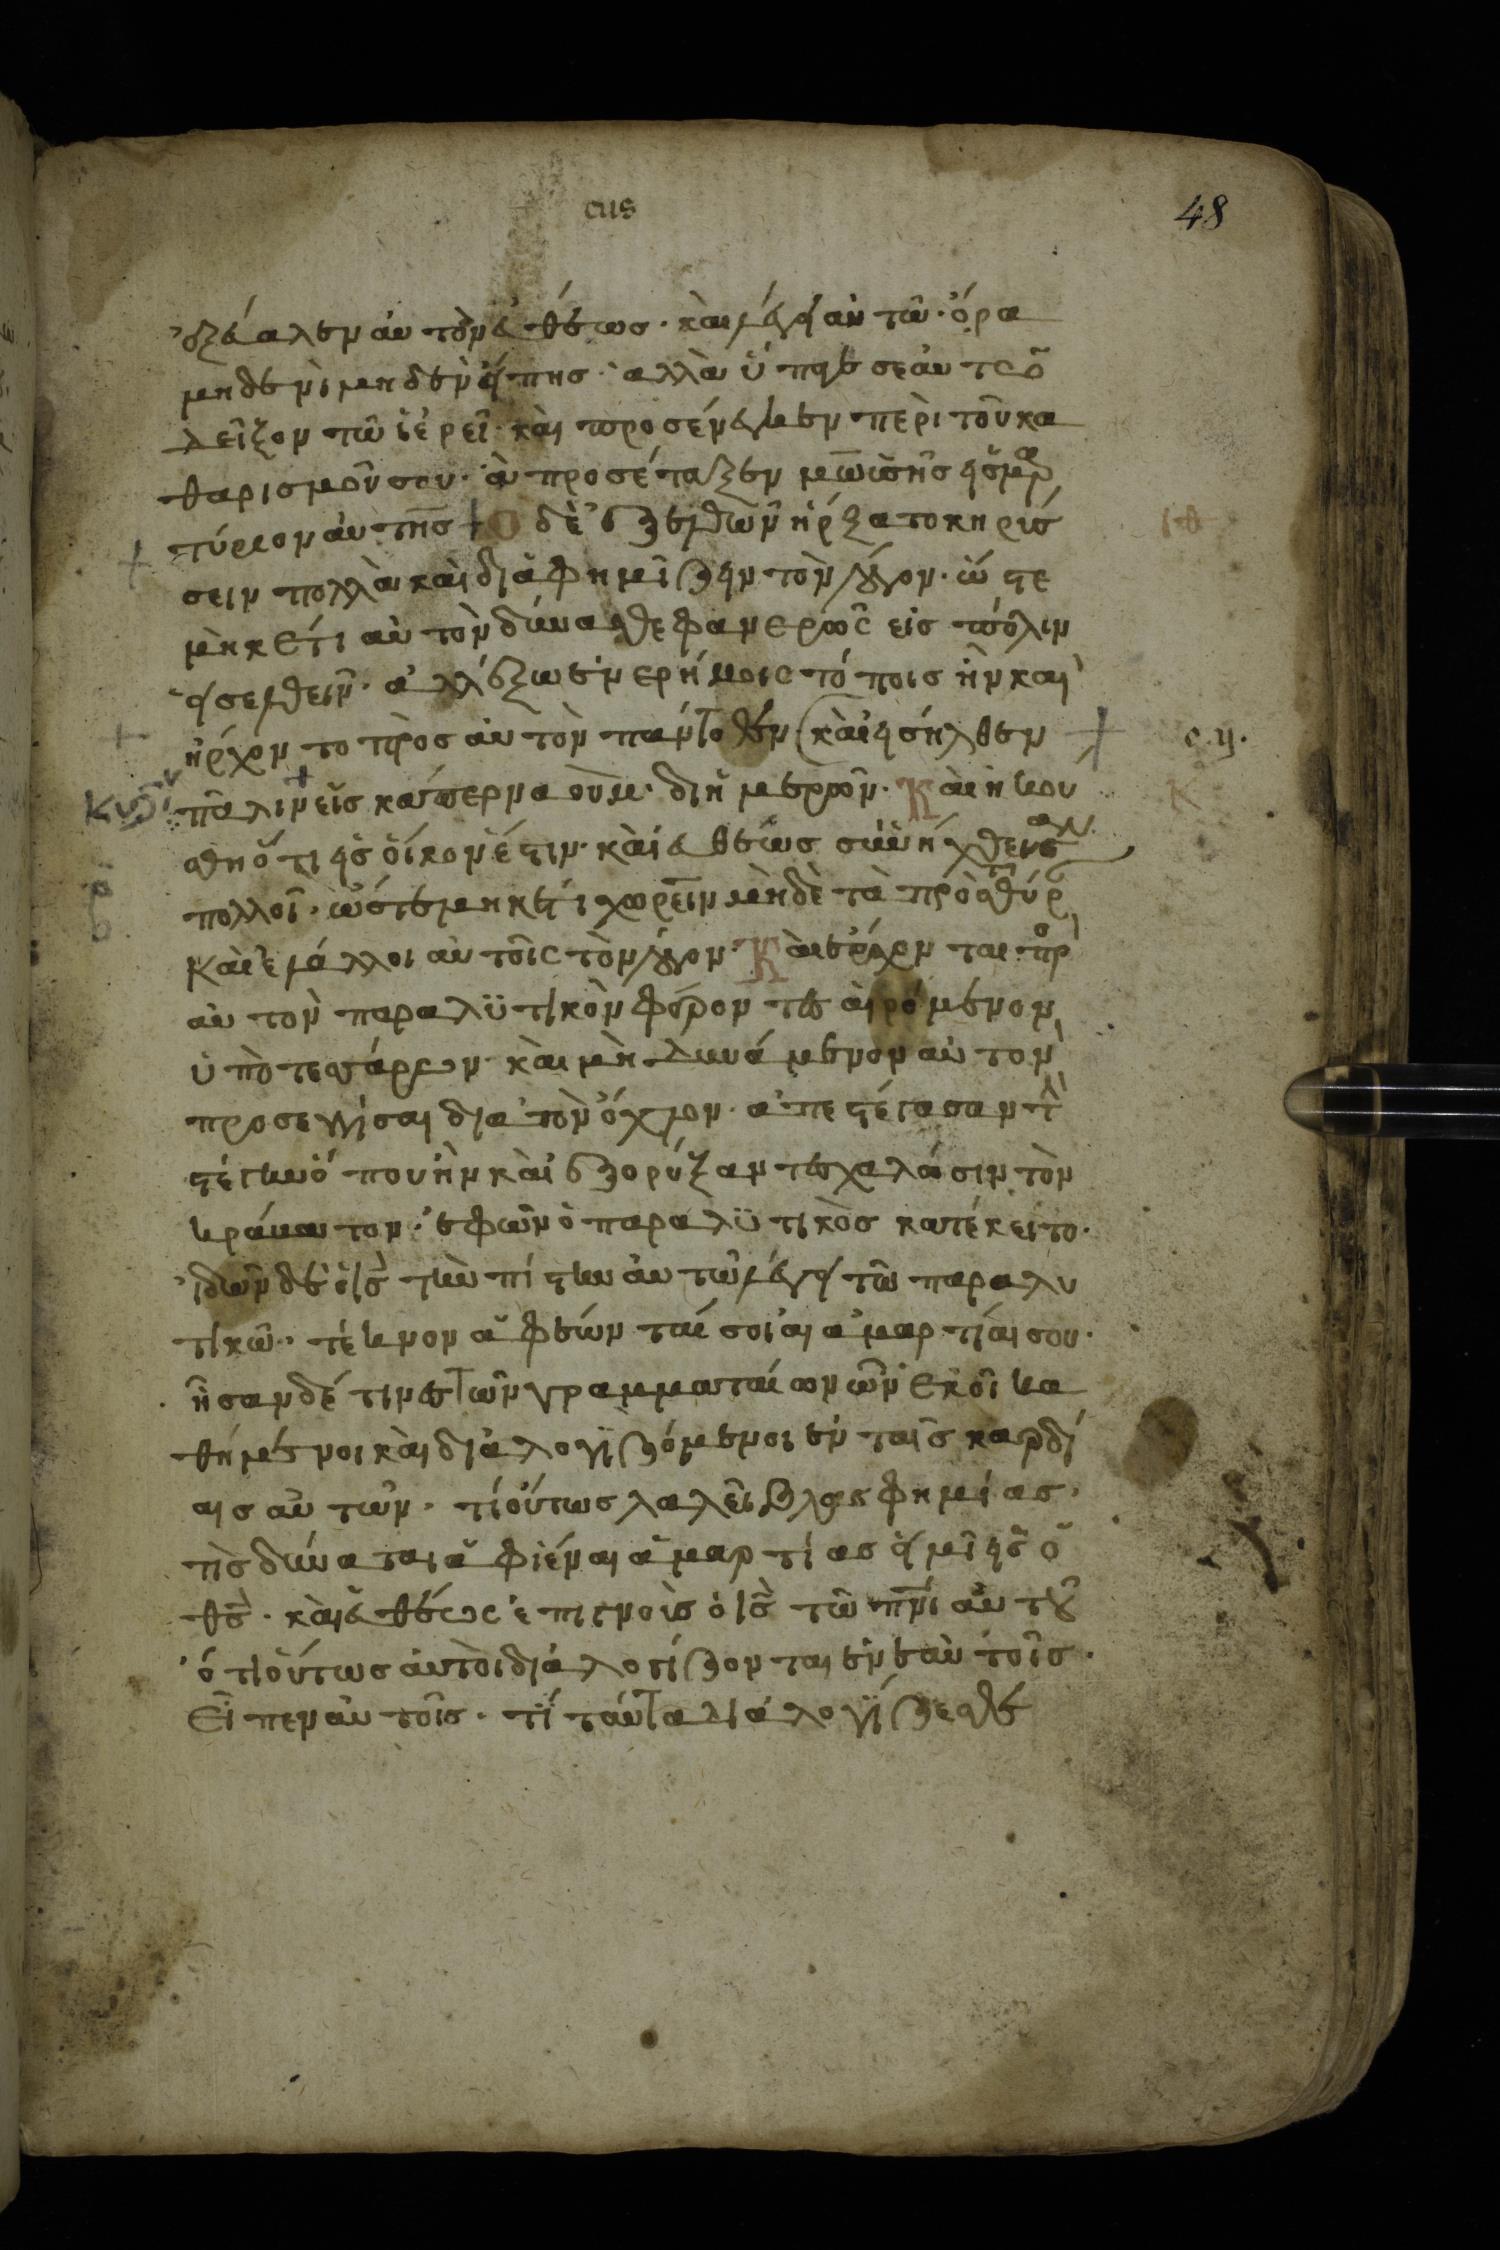 cus
48
ἐξέβαλεν αὐτὸν εὐθέως· καὶ λέγει αὐτῶ· ὅρα
μηδενὶ μηδὲν εἴπης· ἀλλὰ ὕπαγε σεαυτὸν
δεῖξον τῶ ἱερεῖ· καὶ προσένεγκεν περὶ τοῦ κα
θαρισμοῦ σου· ἃ προσέταξεν μωϋσῆς εἰς μαρ
τύριον αὐτοῖς + Ὁ δὲ ἐξελθὼν ἤρξατο κηρύσ
σειν πολλὰ καὶ διαφημίζειν τὸν λόγον· ὥστε
μηκέτι αὐτὸν δύνασθε φανερῶς εἰς πόλιν
εἰσελθεῖν· ἀλλ' ἔξω ἐν ἐρήμοις τόποις ἦν καὶ
ἤρχοντο πρὸς αὐτὸν πάντοθεν (καὶ εἰσῆλθεν
πάλιν εἰς καπερναούμ· δι' ἡμερῶν· Καὶ ἠκού
σθη ὅτι εἰς οἶκον ἐστιν· καὶ εὐθέως συνήχθησαν
πολλοὶ· ὥστε μηκέτι χωρεῖν μηδὲ τὰ πρὸς τὴν θύρ
καὶ ἐλάλει αὐτοῖς τὸν λόγον· Καὶ ἔρχονται πρ
αὐτὸν παραλϋτικὸν φέροντες αἰρόμενον
ὑπὸ τεσσάρων· καὶ μὴ δυνάμενοι αὐτον
προσεγγίσαι δια τὸν ὄχλον· ἀπεστέγασαν τὴν
στέγην ὅπου ἦν καὶ ἐξορύξαντες χαλῶσιν τὸν
κράβαττον· ἐφ' ὧν ὁ παραλϋτικὸς κατέκειτο·
ἰδὼν δὲ ὁ ι̅ς̅ τὴν πίστιν αὐτῶν λέγει τῶ παραλυ
τικῶ· τέκνον ἀφέωνταί σοι αἱ ἁμαρτίαι σου·
ἦσαν δέ τινες τῶν γραμματαίων ἐκεῖ κα
θήμενοι καὶ διαλογιζόμενοι ἐν ταῖς καρδί
αις αὐτῶν· τί οὕτως λαλεῖ βλασφημίας·
τίς δύναται ἀφιέναι ἁμαρτίας εἰ μὴ εἷς ὁ
θ̅ς̅· καὶ εὐθέως ἐπιγνοὺς ὁ ι̅ς̅ τῶ π̅ν̅ι αὐτοῦ
ὅτι οὕτως αὐτοὶ διαλογίζονται ἐν ἑαυτοῖς·
εἶπεν αὐτοῖς· τί ταῦτα διαλογίζεσθε